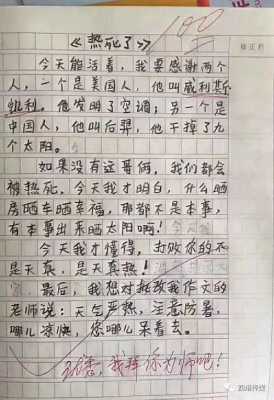 100
《热死了》
修正栏
今天能活着,我要感谢两个
人,一个是美国人,他叫威利斯
·开利。他发明了空调;另一个是
中国人,他叫后羿,他干掉了九
个太阳。
如果没有这哥俩,我们都会
被热死。今天我才明白,什么晒
房晒车晒幸福,那都不是本事,
有本事出来晒太阳啊!
今天我才懂得,打败你的不
是天真,是天真热!
最后,我想对批改我作文的
老师说:天气严热,注意防暑,
哪儿凉快,您哪儿呆着去。
我拜你为师吧!